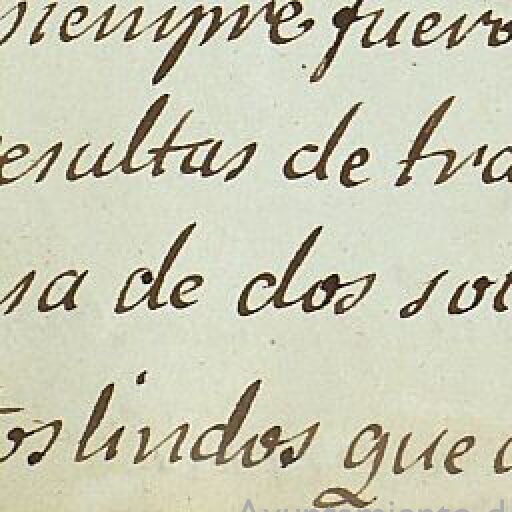 siempre fuero
resultas de tra
sa de dos sol
tos lindos que
Ayuntamiento d